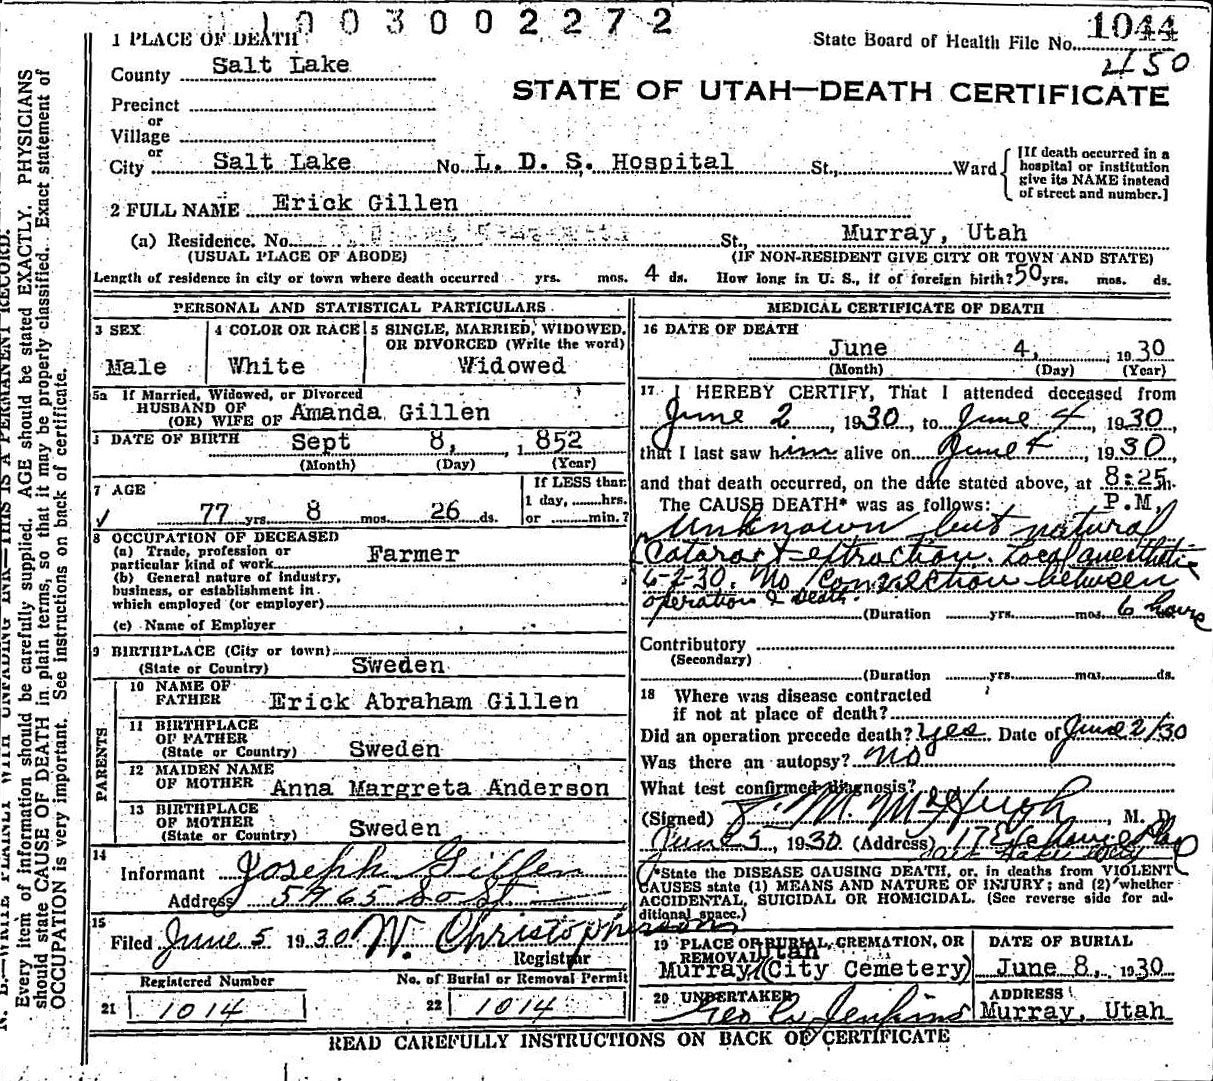 1003002272
1 PLACE OF DEATH
State Board of Health File No. 1044
450
County Salt Lake
STATE OF UTAH—DEATH CERTIFICATE
Precinct
or
Village
or
City Salt Lake No. L. D. S. Hospital St., Ward
[If death occurred in a
hospital or institution
give its NAME instead
of street and number.]
2 FULL NAME Erick Gillen
(a) Residence. No. St., Murray, Utah
(USUAL PLACE OF ABODE) (IF NON-RESIDENT GIVE CITY OR TOWN AND STATE)
Length of residence in city or town where death occurred yrs. mos. 4 ds. How long in U. S., if of foreign birth? 50 yrs. mos. ds.
PERSONAL AND STATISTICAL PARTICULARS
3 SEX
Male
4 COLOR OR RACE
White
5 SINGLE, MARRIED, WIDOWED,
OR DIVORCED (Write the word)
Widowed
5a If Married, Widowed, or Divorced
HUSBAND OF
(OR) WIFE OF Amanda Gillen
DATE OF BIRTH Sept 8, 1852
(Month) (Day) (Year)
7 AGE
77 yrs. 8 mos. 26 ds.
If LESS than
1 day, hrs.
or min.?
8 OCCUPATION OF DECEASED
(a) Trade, profession or
particular kind of work Farmer
(b) General nature of industry,
business, or establishment in
which employed (or employer)
(c) Name of Employer
9 BIRTHPLACE (City or town)
(State or Country) Sweden
PARENTS
10 NAME OF
FATHER Erick Abraham Gillen
11 BIRTHPLACE
OF FATHER
(State or Country) Sweden
12 MAIDEN NAME
OF MOTHER Anna Margreta Anderson
13 BIRTHPLACE
OF MOTHER
(State or Country) Sweden
14
Informant Joseph Gillen
Address 5965 So St
15
Filed June 5 1930 W. Christopherson
Registrar
Registered Number
21 1014
No. of Burial or Removal Permit
22 1014
MEDICAL CERTIFICATE OF DEATH
16 DATE OF DEATH
June 4, 1930
(Month) (Day) (Year)
17 I HEREBY CERTIFY, That I attended deceased from
June 2, 1930, to June 4, 1930,
that I last saw him alive on June 4, 1930,
and that death occurred, on the date stated above, at 8:25 m.
The CAUSE DEATH* was as follows: P.M.
Unknown but natural
Cataract extraction. Local anesthetic
6-2-30. No connection between
operation & death.
(Duration yrs. mos. 6 hours
Contributory
(Secondary)
(Duration yrs. mos. ds.
18 Where was disease contracted
if not at place of death?
Did an operation precede death? Yes. Date of June 2/30
Was there an autopsy? No
What test confirmed diagnosis?
(Signed) M. McHugh, M. D.
June 5, 1930 (Address) 17 Exchange Place
Salt Lake City
*State the DISEASE CAUSING DEATH, or, in deaths from VIOLENT
CAUSES state (1) MEANS AND NATURE OF INJURY; and (2) whether
ACCIDENTAL, SUICIDAL OR HOMICIDAL. (See reverse side for ad-
ditional space.)
19 PLACE OF BURIAL, CREMATION, OR
REMOVAL Utah
Murray (City Cemetery)
DATE OF BURIAL
June 8, 1930
20 UNDERTAKER
Geo Jenkins
ADDRESS
Murray, Utah
READ CAREFULLY INSTRUCTIONS ON BACK OF CERTIFICATE
N. B.—WRITE PLAINLY WITH UNFADING INK—THIS IS A PERMANENT RECORD.
Every item of information should be carefully supplied. AGE should be stated EXACTLY. PHYSICIANS
should state CAUSE OF DEATH in plain terms, so that it may be properly classified. Exact statement of
OCCUPATION is very important. See instructions on back of certificate.